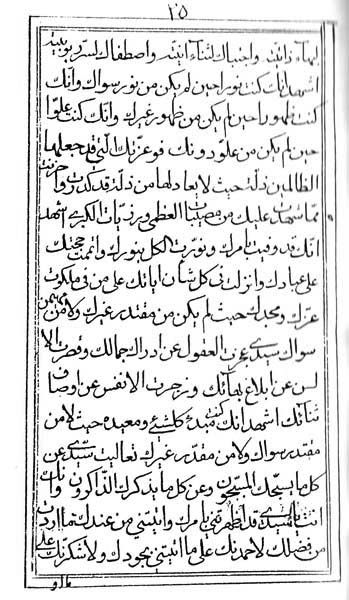 ١٥
لبهاء ذاتيته واجتباك لثناء انيته واصطفاك لسر ربوبيته
اشهد انك كنت نورا حين لم يكن من نور سواك وانك
كنت ظهورا حين لم يكن من ظهور غيرك وانك كنت علوا
حين لم يكن من علو دونك فوعزتك التي قد جعلها
الظالمين ذلة حيث لا يعادلها من ذلة قد كدرت واحزنت
مما شهدت عليك من مصيبات العظمى ورزيات الكبرى اشهد
انك قد وفيت بامرك ونورت الكل بنورك واتممت حجتك
على عبادك وانزلت في كل شان اياتك على من في ملكوت
عزك ومجدك حيث لم يكن من مقتدر غيرك ولا من مهيمن
سواك سيدي عجزت العقول عن ادراك جمالك وقصرت الا
لسن عن ابلاغ بهائك وزجرت الانفس عن اوصاف
ثنائك اشهد انك كنت مبدء كلشئ ومعيده حيث لا من
مقتدر سواك ولا من مقدر غيرك تعاليت سيدي عن
كل ما يسبحك المسبحون وعن كل ما يذكرك الذاكرون وانك
انت يا سيدي قد اظهرتني بامرك واتيتني من عندك ما اردت
من فضلك لاحمدنك على ما اتيتني بجودك ولاشكرنك على
مالو